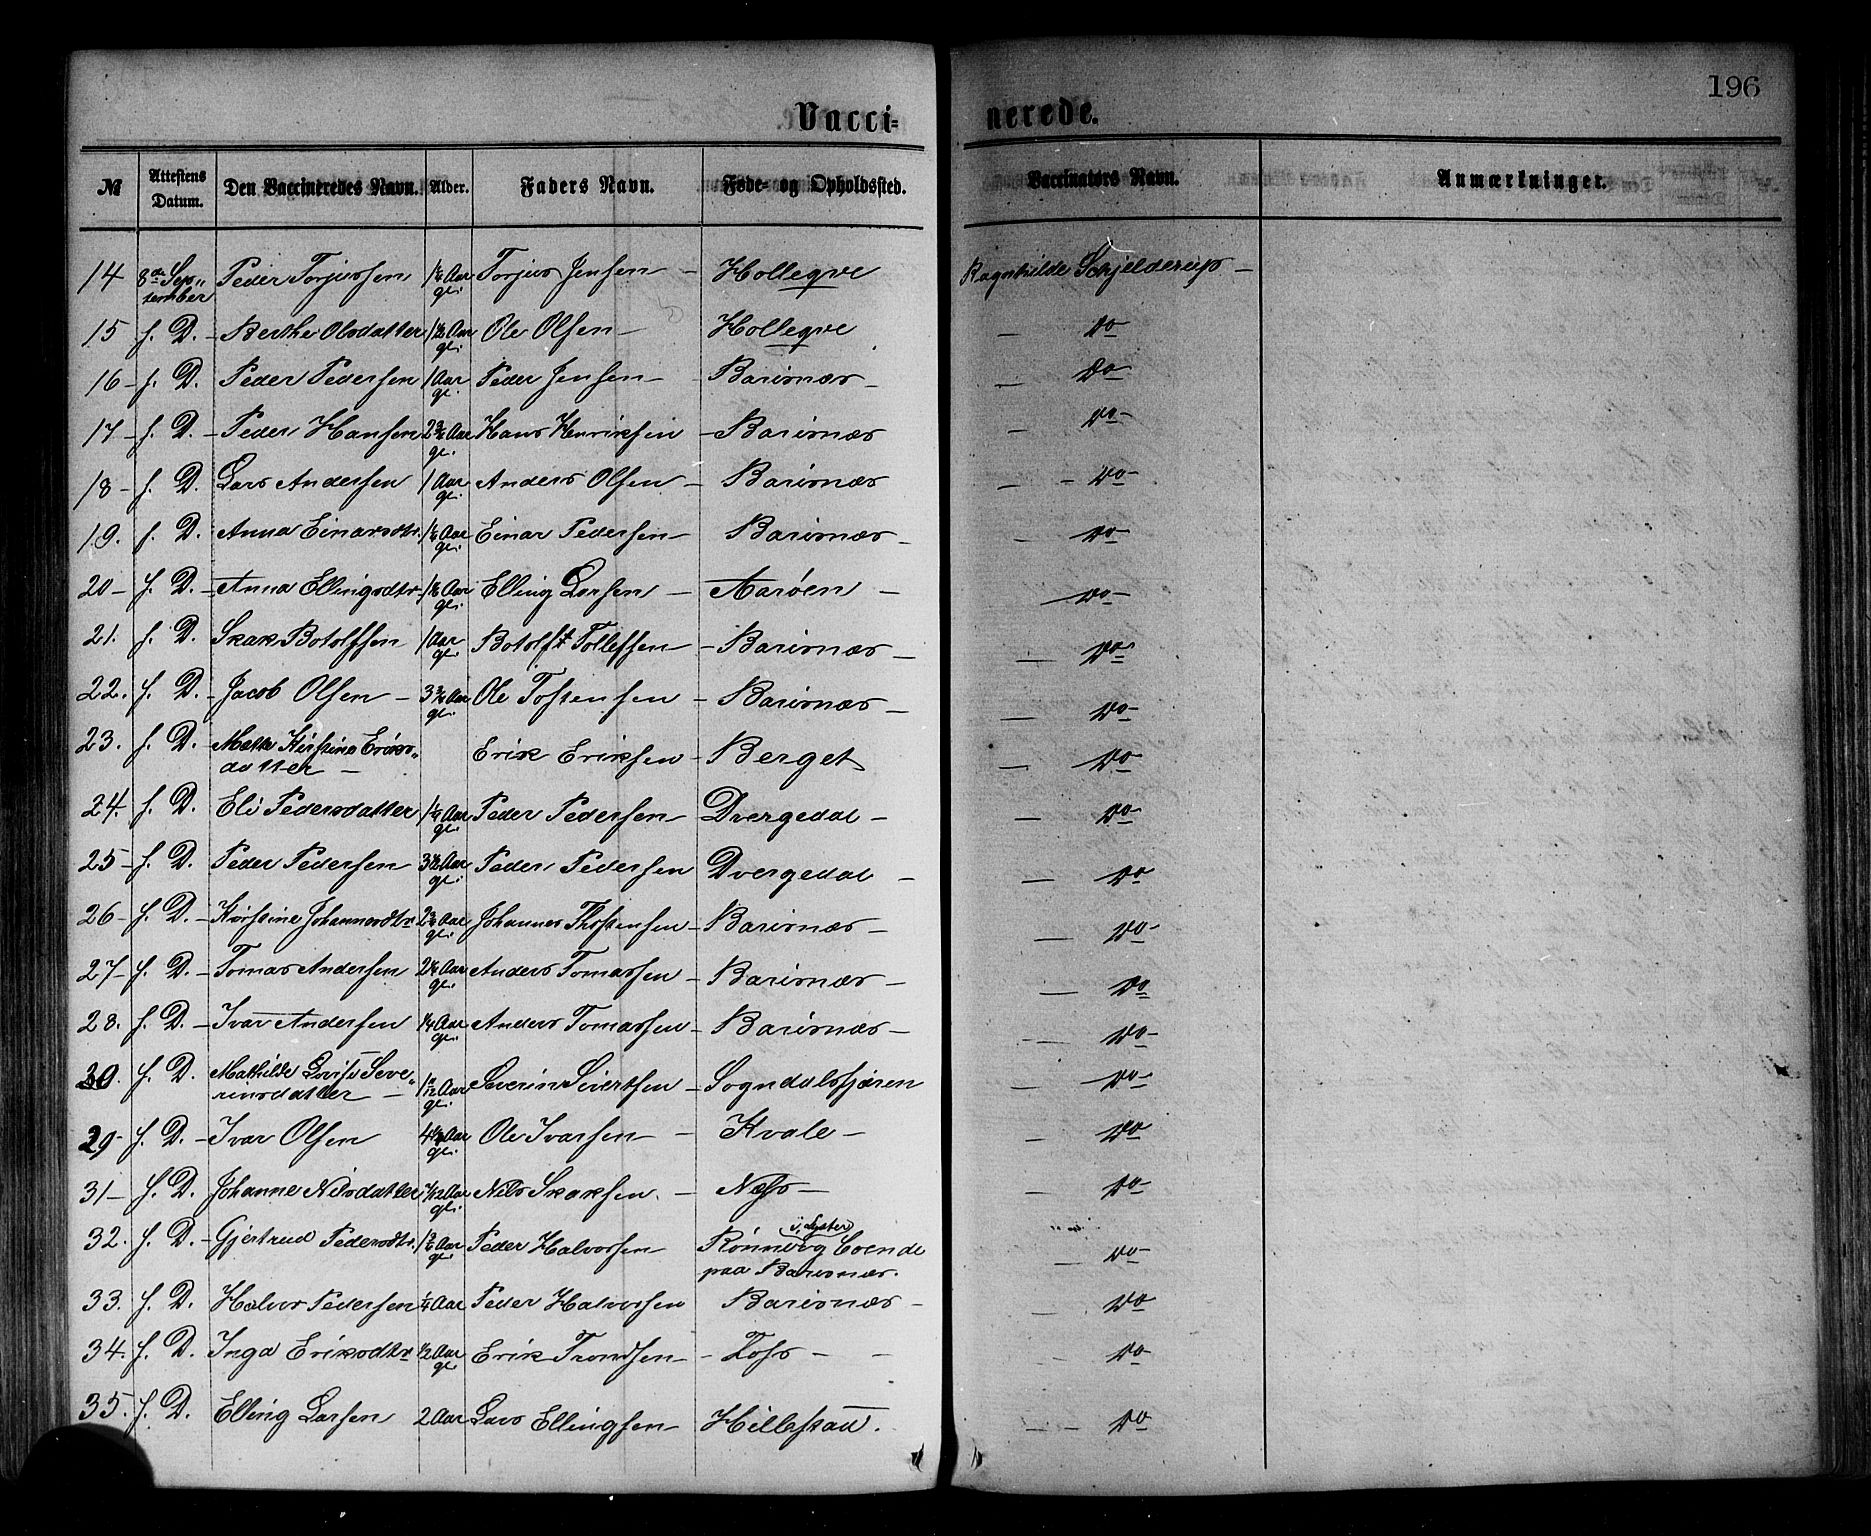 196
Vacci= nerede.
№ Attestens Datum. Den Vaccineredes Navn. Alder. Faders Navn. Føde- og Opholdssted. Vaccinators Navn. Anmærkninger.
14 8de Sep„tember Peder Torjussen 1¼ Aar gl. Torjus Jensen – Hollegve Ragnhilde Schjelderup –
15 s. D. – Berthe Olsdatter 1½ Aar gl. Ole Olsen – Hollegve — Do
16 – s. D. Peder Pedersen 1 Aar gl. Peder Jensen – Barsnæs – — Do
17 – s. D. – Peder Hansen Aar gl. Hans Henriksen – Barsnæs — Do –
18 – s. D. Lars Andersen 1 Aar gl. Anders Olsen – Barsnæs — – Do –
19. s. D. Anna Einarsdtr. Aar gl. Einar Pedersen – Barsnæs – — Do –
20 – s. D. – Anna Ellingsdtr. Aar gl. Elling Larsen – Aarøen – — Do –
21. s. D. Skak Botolfsen 1 Aar gl. Botolf Tollefsen – Barsnæs – — Do
22. s. D. – Jacob Olsen – 3¾ Aar gl. Ole Tostensen – Barsnæs – — Do –
23. s. D. – Mette Kirstine Eriks„datter – Erik Eriksen – Berget — Do
24. s. D. Eli Pedersdatter 1¼ Aar gl. Peder Pedersen – Dvergedal – — Do –
25 – s. D. – Peder Pedersen 3½ Aar gl. Peder Pedersen Dvergedal – — Do
26 – s. D. – Kirstine Johannesdtr 2¾ Aar gl. Johannes Thostensen – Barsnæs – — Do –
27 – s. D. – Tomas Andersen 2¼ Aar gl. Anders Tomassen – Barsnæs – — Do
28. s. D. – Ivar Andersen ¼ Aar gl. Anders Tomassen – Barsnæs – — Do –
30. s. D. Mathilde Lovise Seve„rinsdatter – Aar gl. Severin Sivertsen – Sogndalsfjæren — Do –
29 – s. D. – Ivar Olsen 4½ Aar gl. Ole Ivarsen – – Kvale – — Do
31 – s. D. Johanne Nilsdatter 7/12 Aar gl. Nils Skaksen. – Næss – — Do –
32. s. D. – Gjertrud Pedersdtr. Aar gl. Peder Halvorsen Rønneog i Lyster boende
paa Barsnæs. Do –
33. s. D. Halvor Pedersen ¼ Aar Peder Halvorsen Barsnæs – — Do
34. s. D. Inga Eriksdtr ½ Aar gl. Erik Trondsen – – Foss – – Do –
35. s. D. Elling Larsen 2 Aar Lars Ellingsen – Hillestad. — Do